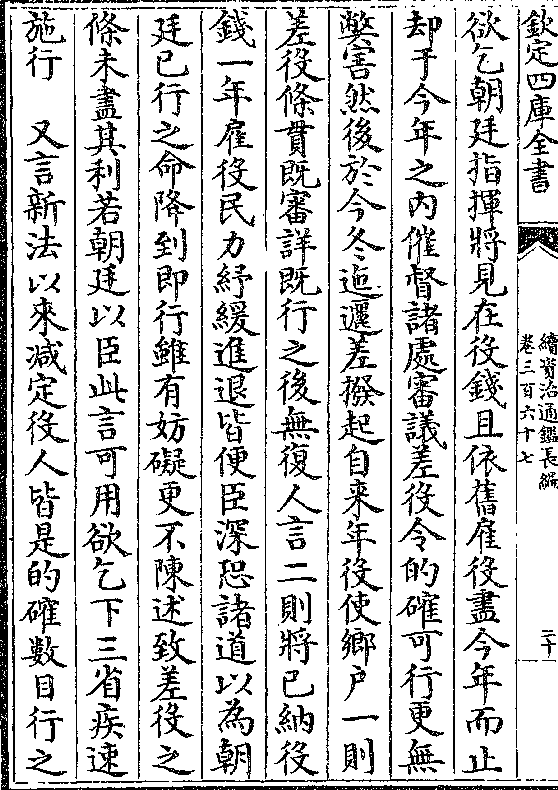 欽定四庫全書
續資治通鑑長編
卷三百六十七
二十
欲乞朝廷指揮將見在役錢且依舊雇役盡今年而止
却于今年之内催督諸處審議差役令的確可行更無
弊害然後於今冬迤邐差撥起自来年役使鄉户一則
差役條貫既審詳既行之後無復人言二則將已納役
錢一年雇役民力紓緩進退皆便臣深恐諸道以為朝
廷已行之命降到即行雖有妨礙更不陳述致差役之
條未盡其利若朝廷以臣此言可用欲乞下三省疾速
施行　又言新法以來減定役人皆是的確數目行之